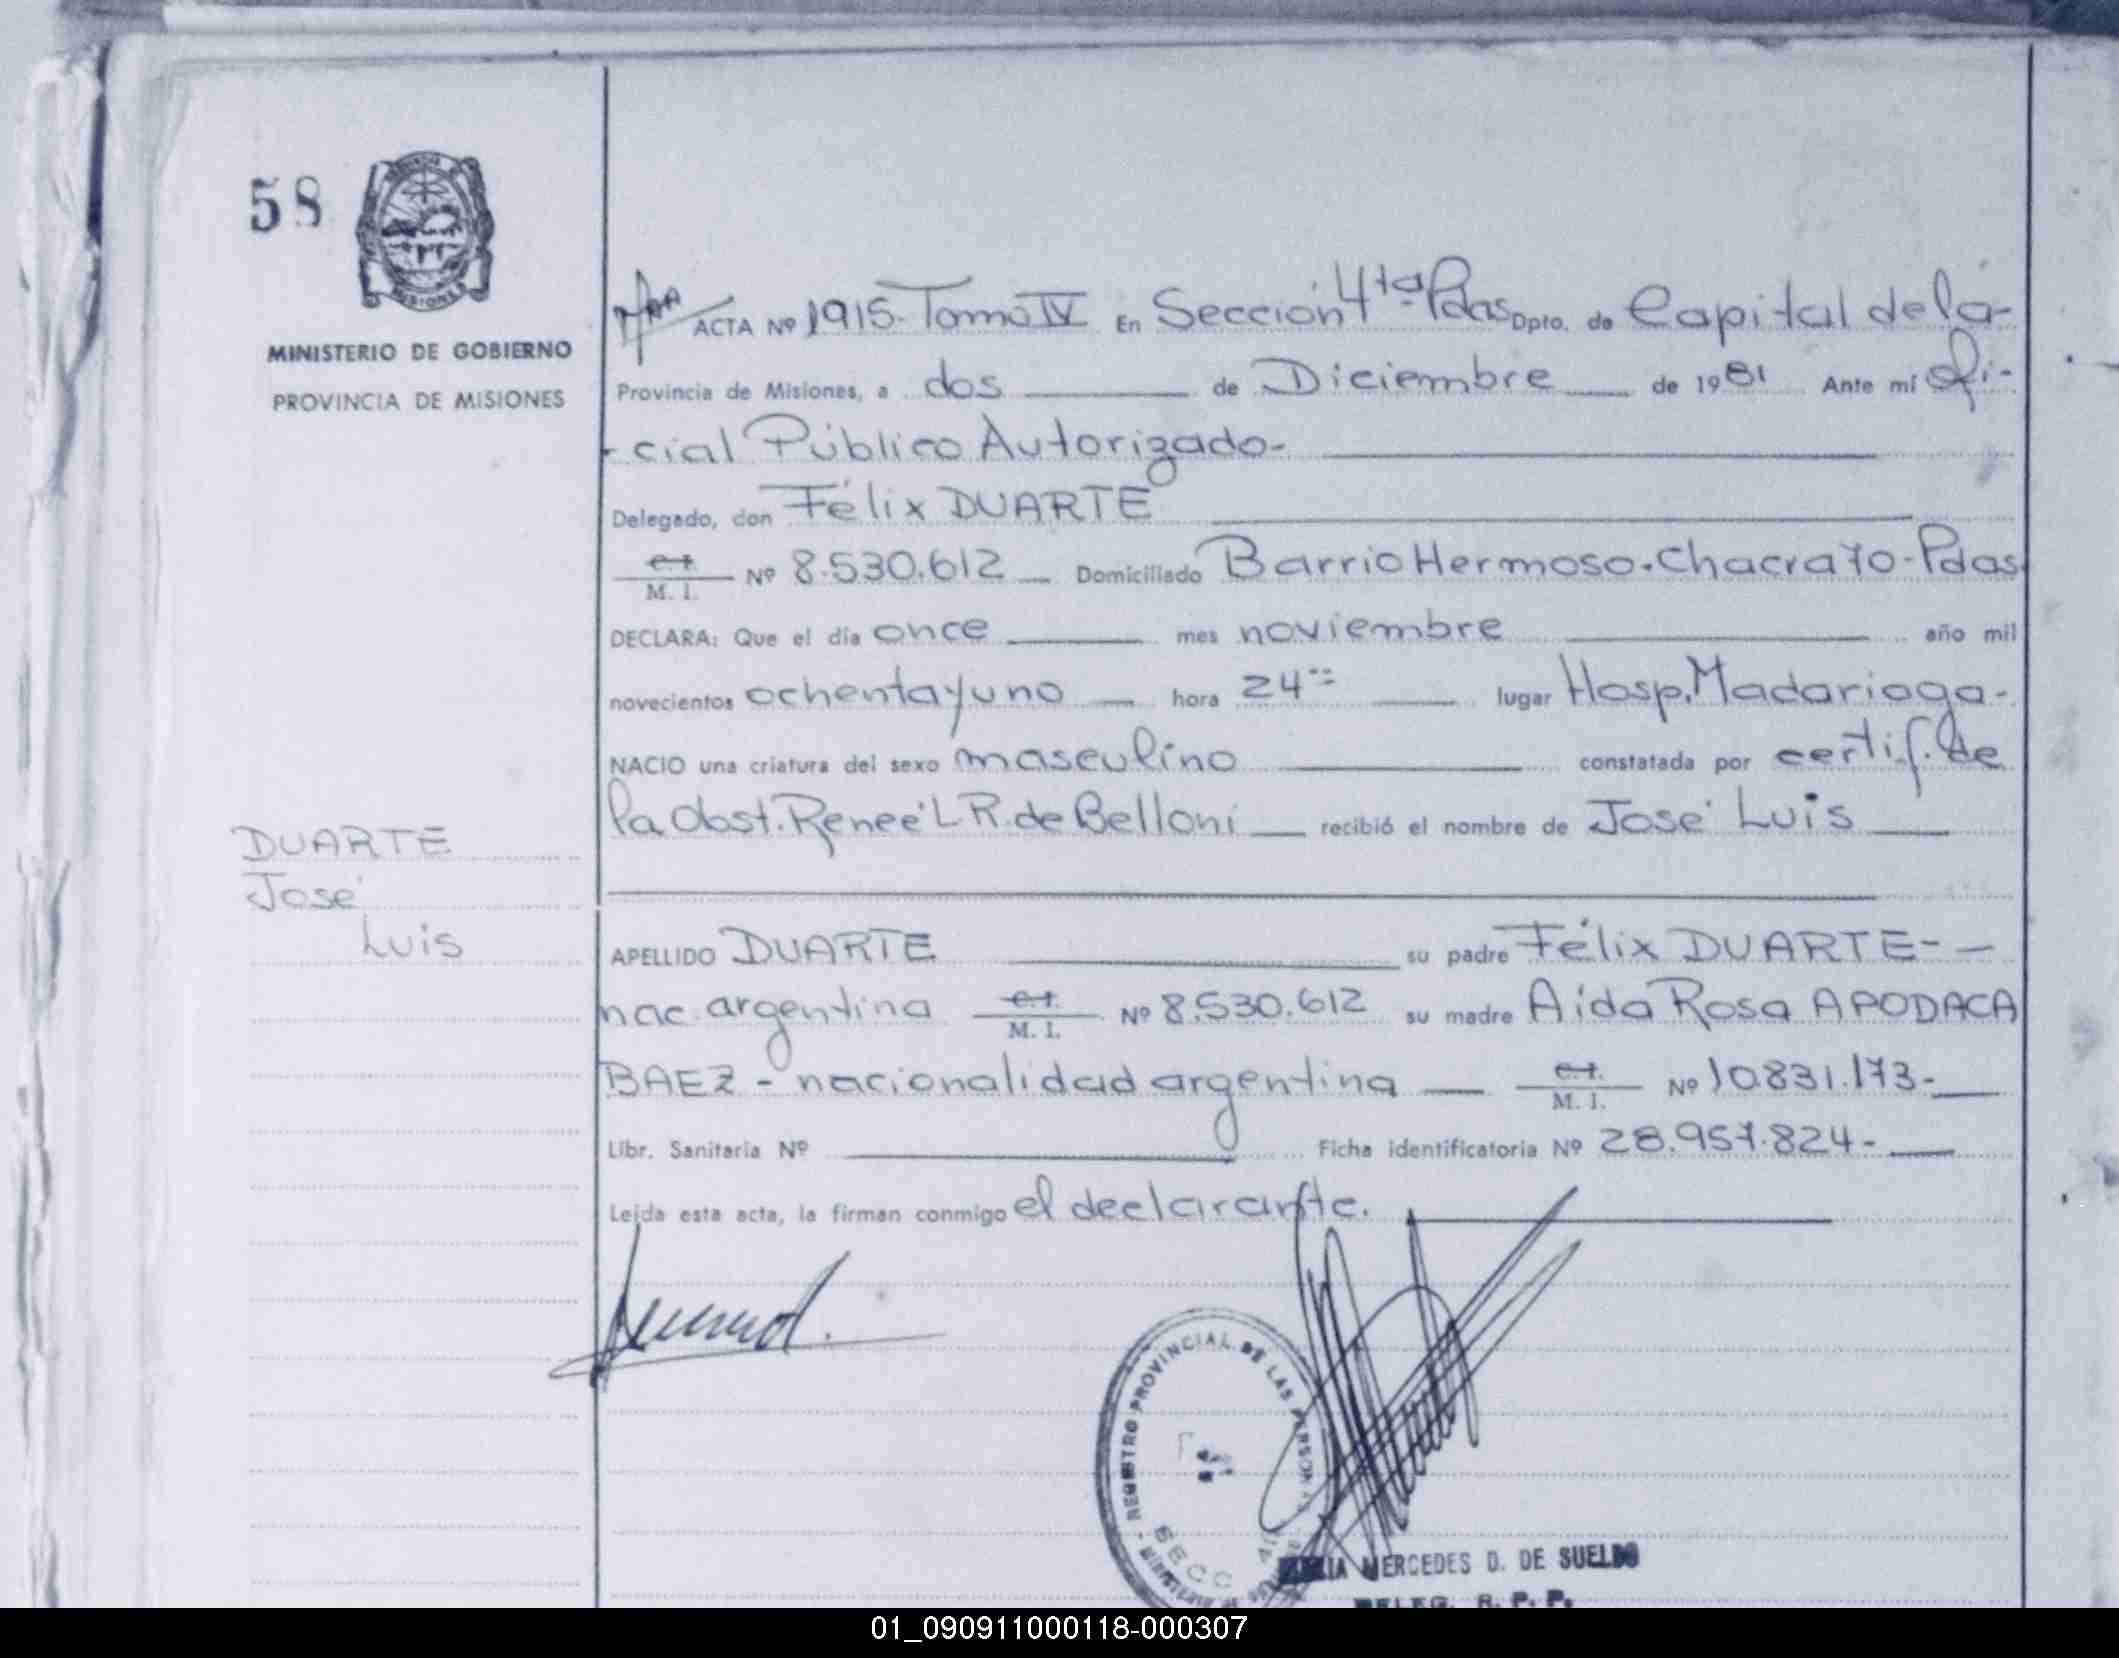 58
MISIONES
MINISTERIO DE GOBIERNO
PROVINCIA DE MISIONES
DUARTE
José
Luis
ACTA Nº 1915-Tomo IV En Sección 4ta Pdas Dpto. de Capital de la-
Provincia de Misiones, a dos de Diciembre de 1981 Ante mí Ofi-
-cial Público Autorizado-
Delegado, don Félix DUARTE
C.I. M. I. Nº 8.530.612 Domiciliado Barrio Hermoso.Chacra 70-Pdas
DECLARA: Que el día once mes noviembre año mil
novecientos ochenta y uno hora 24 lugar Hosp. Madariaga-
NACIO una criatura del sexo masculino constatada por certif. de
la Obst. Reneé L.R. de Belloni recibió el nombre de José Luis
APELLIDO DUARTE su padre Félix DUARTE--
nac. argentina C.I. M. I. Nº 8.530.612 su madre Aida Rosa APODACA
BAEZ - nacionalidad argentina C.I. M. I. Nº 10.831.173-
Libr. Sanitaria Nº Ficha identificatoria Nº 28.957.824-
Leída esta acta, la firman conmigo el declarante.
REGISTRO PROVINCIAL DE LAS PERSONAS
SECC
MERCEDES D. DE SUELDO
DELEG. R. P. P.
01_090911000118-000307